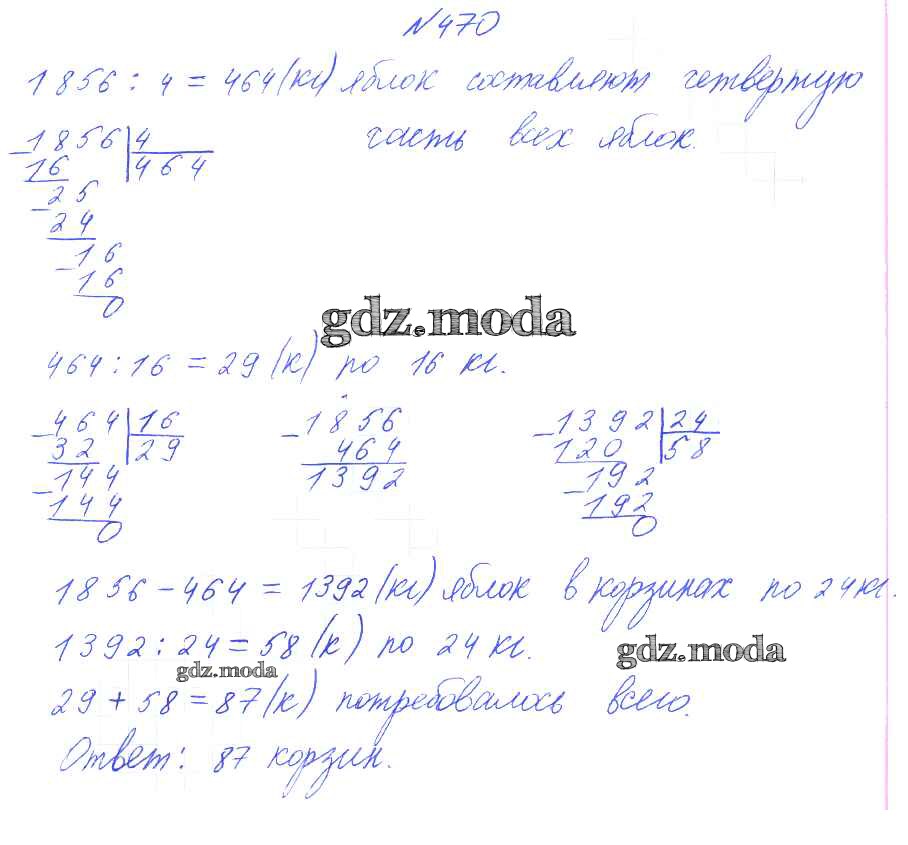 №470
1856 : 4 = 464 (кг) яблок составляют четвертую
часть всех яблок.
- 1856 | 4
16 | 464
- 25
24
- 16
16
0
gdz.moda
464 : 16 = 29 (к) по 16 кг.
- 464 | 16
32 | 29
- 144
144
0
- 1856
464
1392
- 1392 | 24
120 | 58
- 192
192
0
1856 - 464 = 1392 (кг) яблок в корзинах по 24 кг.
1392 : 24 = 58 (к) по 24 кг.
gdz.moda
gdz.moda
29 + 58 = 87 (к) потребовалось всего.
Ответ: 87 корзин.